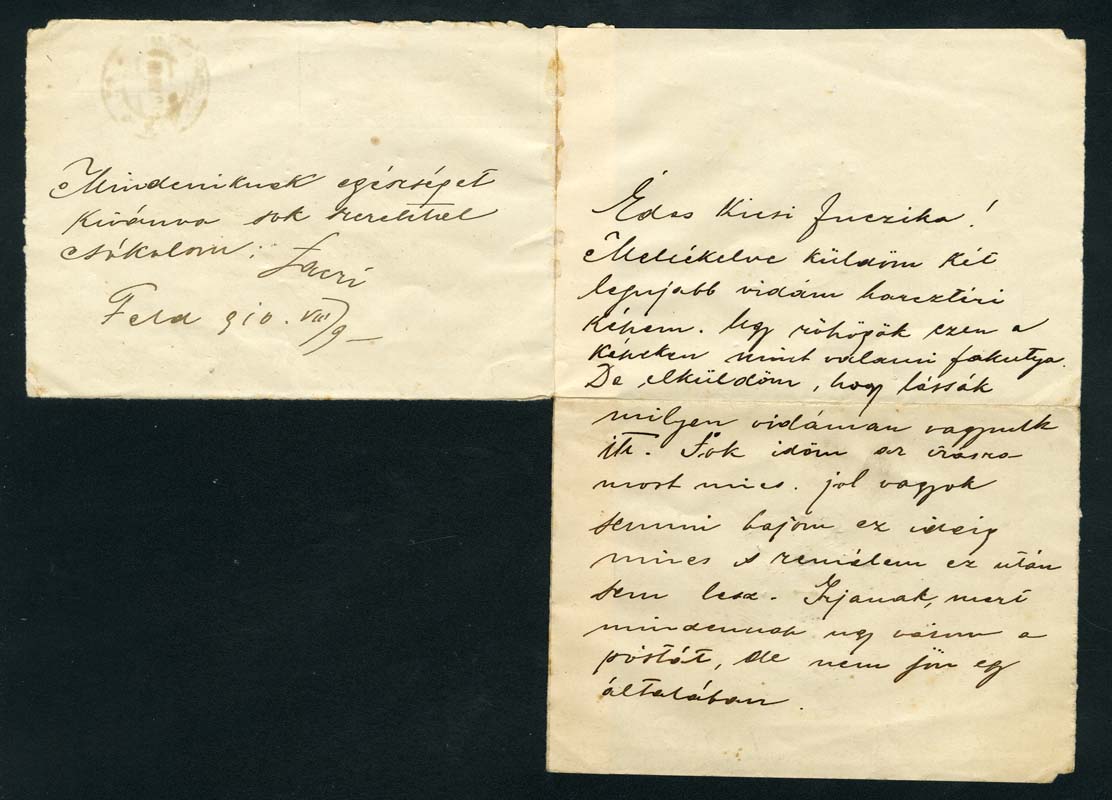 Édes Kicsi Juczika!
Mellékelve küldöm két
legujabb vidám harcztéri
képem. Ugy röhögök ezen a
képeken mint valami fakutya.
De elküldöm, hogy lássák
milyen vidáman vagyunk
itt. Sok időm az irásra
most nincs. jol vagyok
semmi bajom ez ideig
nincs s remélem ez után
sem lesz. Irjanak, mert
mindennap ugy várom a
póstát, de nem jön egy
általában.
Mindeniknek egészséget
kivánva sok szeretettel
csókolom: Laczi
Feld 910. VIII/9-